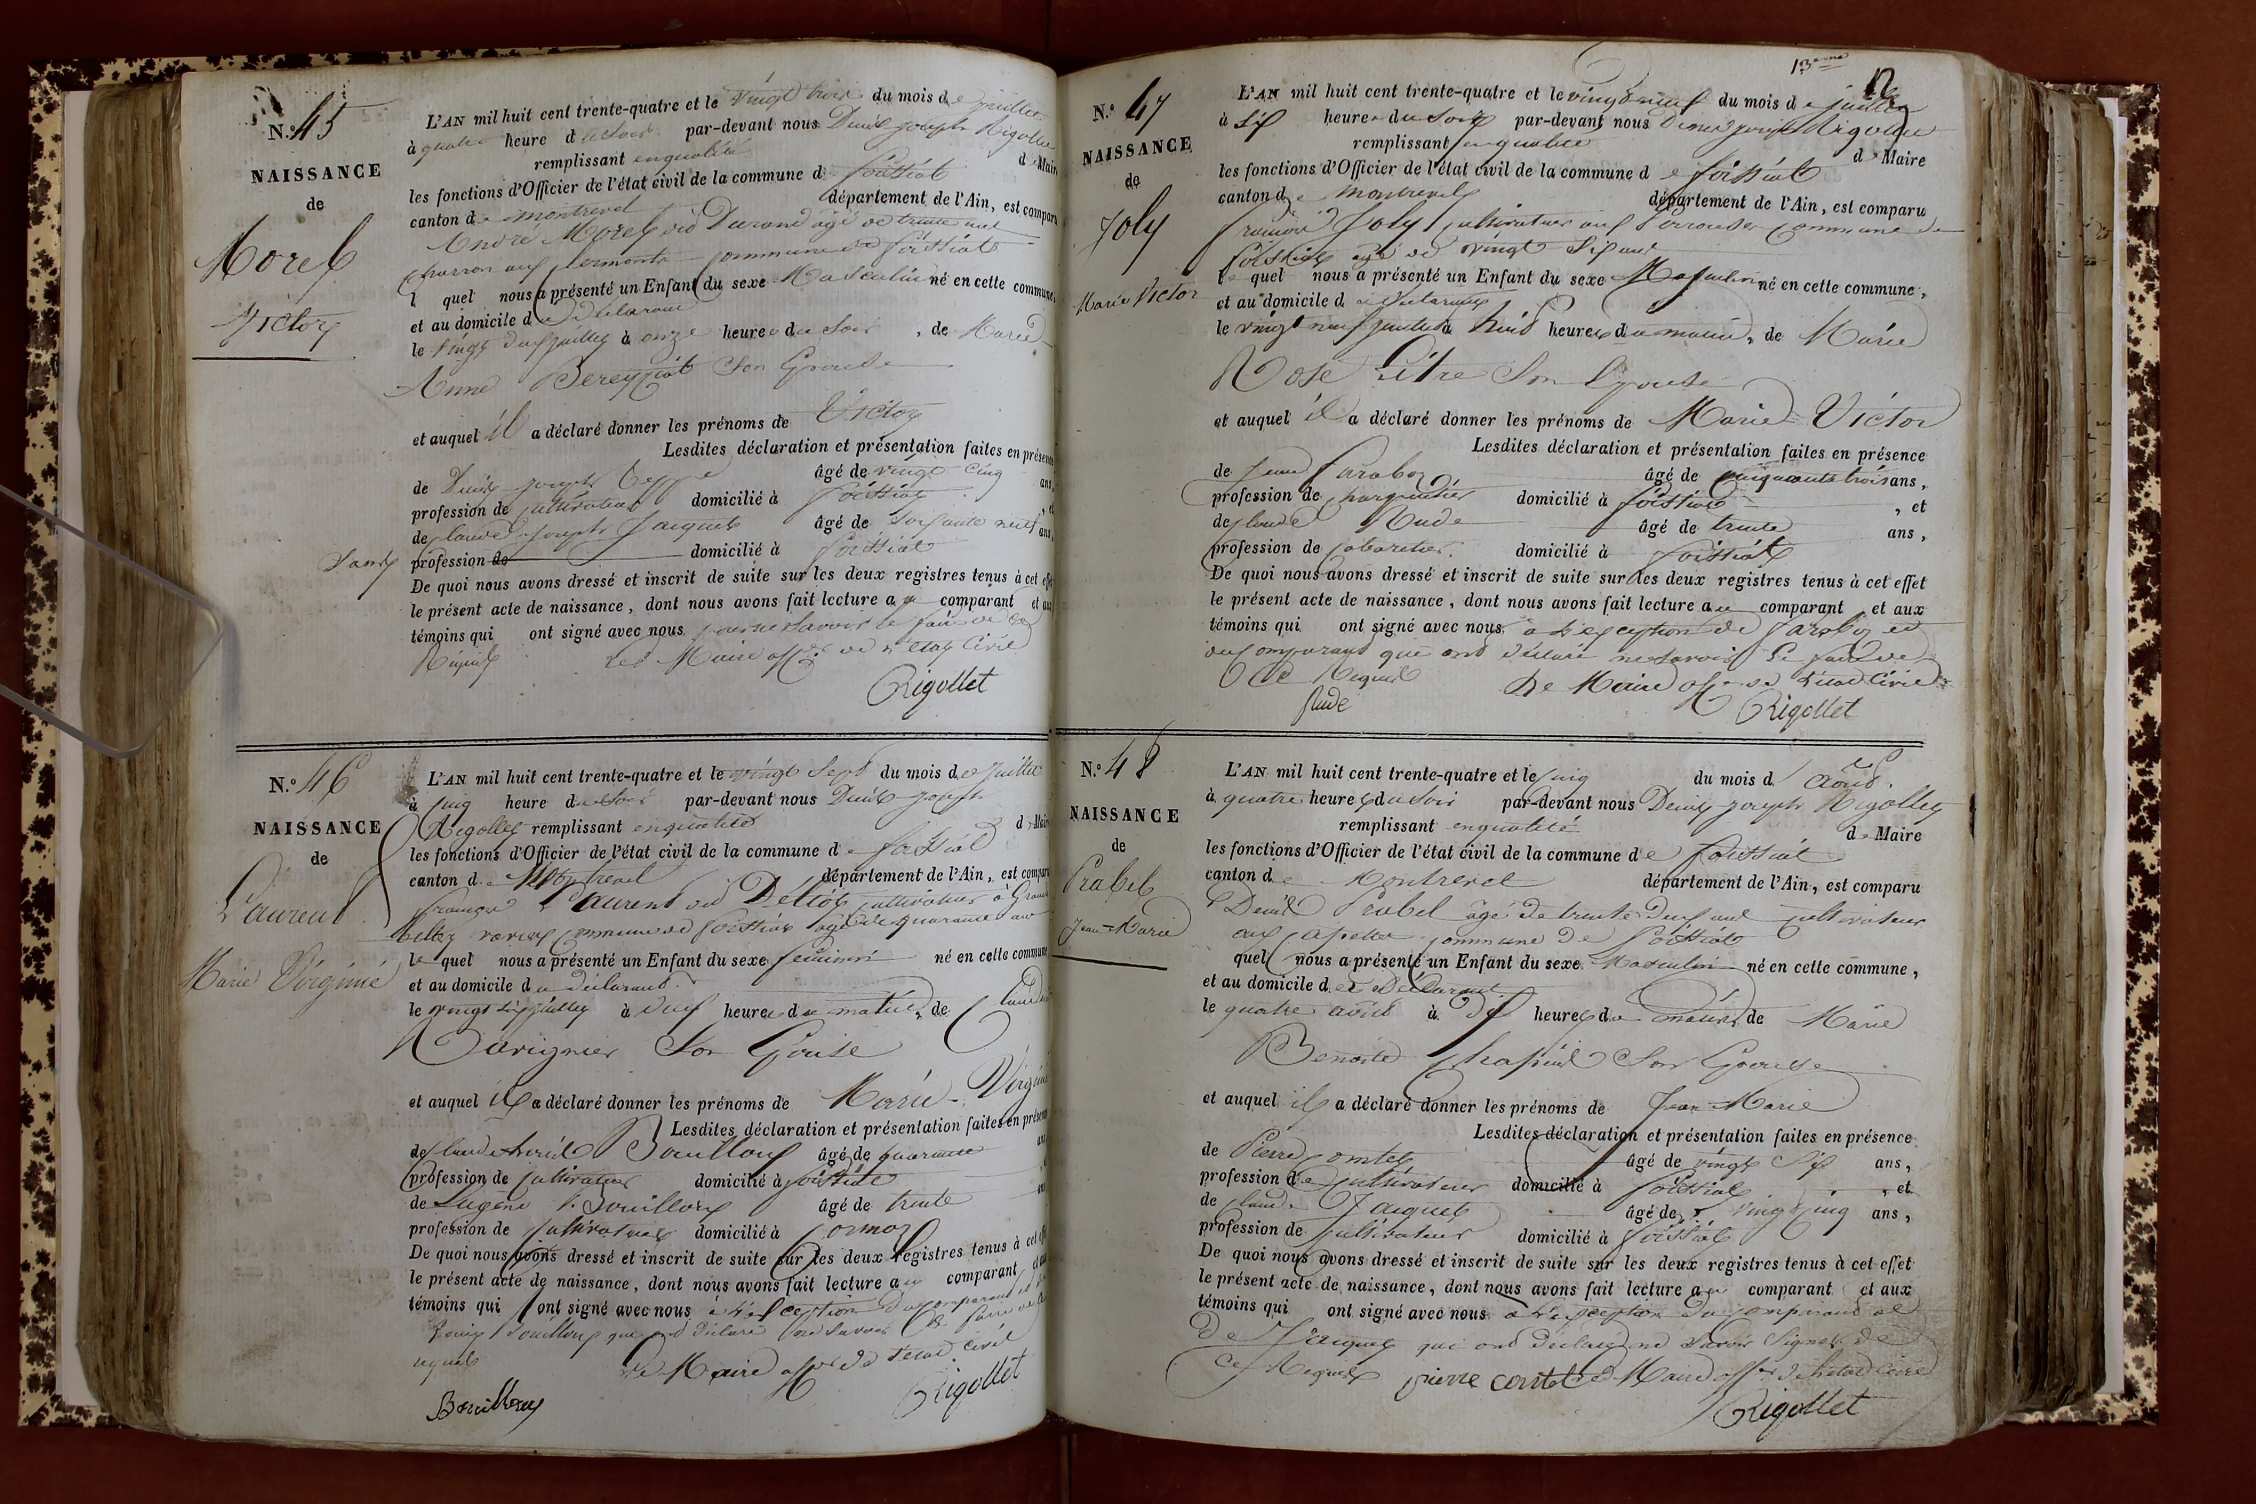 N.º 45
NAISSANCE
de
Morel
Victor
L'AN mil huit cent trente-quatre et le vingt trois du mois de juillet
à quatre heure du soir par-devant nous Denis joseph Rigollet
remplissant en qualité d Maire
les fonctions d'Officier de l'état civil de la commune de foissiat
canton de montrevel département de l'Ain, est comparu
André Morel dit Durand âgé de trente
charron commune de foissiat
l quel nous a présenté un Enfant du sexe Masculin né en cette commune,
et au domicile du déclarant
le vingt deux juillet à onze heure du soir, de Marie
Anne Bereyziat son Epouse
et auquel il a déclaré donner les prénoms de Victor
Lesdites déclaration et présentation faites en présence
de Denis joseph âgé de vingt cinq ans,
profession de cultivateur domicilié à foissiat, et
de claude joseph Jacquet âgé de soixante neuf ans,
Sans profession de domicilié à foissiat
De quoi nous avons dressé et inscrit de suite sur les deux registres tenus à cet effet
le présent acte de naissance, dont nous avons fait lecture au comparant et aux
témoins qui ont signé avec nous pour ne savoir le faire de ce
Requis Le Maire off de l'état Civil
Rigollet
N.º 46
NAISSANCE
de
Laurent
Marie Virginie
L'AN mil huit cent trente-quatre et le vingt sept du mois de juillet
à cinq heure du soir par-devant nous Denis joseph
Rigollet remplissant en qualité d Maire
les fonctions d'Officier de l'état civil de la commune de foissiat
canton de Montrevel département de l'Ain, est comparu
Laurent dit cultivateur à Grand
commune de foissiat âgé de quarante ans
le quel nous a présenté un Enfant du sexe feminin né en cette commune
et au domicile du déclarant
le vingt six juillet à deux heure du matin, de Claudine
Savignier son Epouse
et auquel il a déclaré donner les prénoms de Marie Virginie
Lesdites déclaration et présentation faites en présence
de claude Bouilloux âgé de quarante ans
profession de cultivateur domicilié à foissiat
de Eugène Bouilloux âgé de trente
profession de cultivateur domicilié à cormoz
De quoi nous avons dressé et inscrit de suite sur les deux registres tenus à cet effet
le présent acte de naissance, dont nous avons fait lecture au comparant et aux
témoins qui ont signé avec nous à l'exception du comparant et
Bouilloux que ont déclaré ne savoir le faire de ce
requis Le Maire off de l'état civil
Bouilloux Rigollet
13eme
12
N.º 47
NAISSANCE
de
Joly
Marie Victor
L'AN mil huit cent trente-quatre et le vingt neuf du mois de juillet
à six heure du soir par-devant nous Denis joseph Rigollet
remplissant en qualité d Maire
les fonctions d'Officier de l'état civil de la commune de foissiat
canton de montrevel département de l'Ain, est comparu
Joly cultivateur aux commune de
foissiat âgé de vingt six ans
le quel nous a présenté un Enfant du sexe Masculin né en cette commune,
et au domicile du déclarant
le vingt neuf juillet à huit heures du matin, de Marie
Rose Pitre son Epouse
et auquel il a déclaré donner les prénoms de Marie Victor
Lesdites déclaration et présentation faites en présence
de âgé de cinquante trois ans,
profession de charpentier domicilié à foissiat, et
de claude Rude âgé de trente ans,
profession de cabaretier domicilié à foissiat
De quoi nous avons dressé et inscrit de suite sur les deux registres tenus à cet effet
le présent acte de naissance, dont nous avons fait lecture au comparant et aux
témoins qui ont signé avec nous à l'exception de et
du comparant que ont déclaré ne savoir le faire de
ce Requis Le Maire off de l'état Civil
Rude Rigollet
N.º 48
NAISSANCE
de
Prabel
Jean Marie
L'AN mil huit cent trente-quatre et le cinq du mois d'août
à quatre heures du soir par-devant nous Denis joseph Rigollet
remplissant en qualité d Maire
les fonctions d'Officier de l'état civil de la commune de foissiat
canton de Montrevel département de l'Ain, est comparu
Denis Prabel âgé de trente deux ans cultivateur
aux commune de foissiat
quel nous a présenté un Enfant du sexe Masculin né en cette commune,
et au domicile de Déclarant
le quatre août à dix heures du matin de Marie
Benoite son Epouse
et auquel il a déclaré donner les prénoms de Jean Marie
Lesdites déclaration et présentation faites en présence
de Pierre comtet âgé de vingt six ans,
profession de cultivateur domicilié à foissiat, et
de claude Jacquet âgé de vingt cinq ans,
profession de cultivateur domicilié à foissiat
De quoi nous avons dressé et inscrit de suite sur les deux registres tenus à cet effet
le présent acte de naissance, dont nous avons fait lecture au comparant et aux
témoins qui ont signé avec nous à l'exception du comparant et
de Jacquet qui ont déclaré ne savoir signer de
ce Requis pierre contet Le Maire off de l'état civil
Rigollet